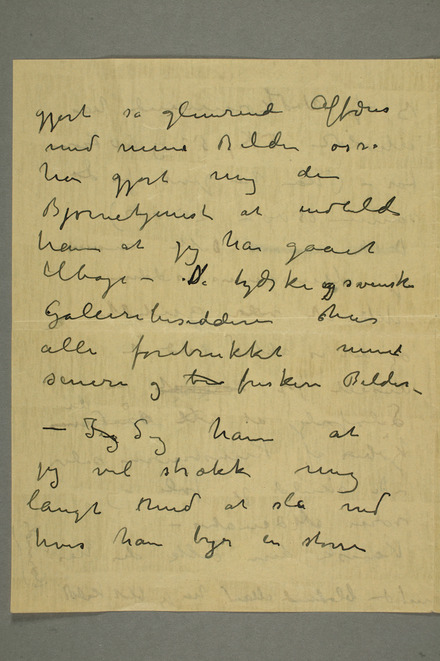 gjort så glimrende Affærer
med mine Billeder osv.
har gjort mig den
Bjørnetjeneste at indbilde
ham at jeg har gaaet
tilbage – De tydske og svenske
Galleribesiddere har
alle foretrukket mine
senere og friskere Billeder –
– Jeg Sig ham at
jeg vil strække mig
langt med at slå ned
hvis han tager en større